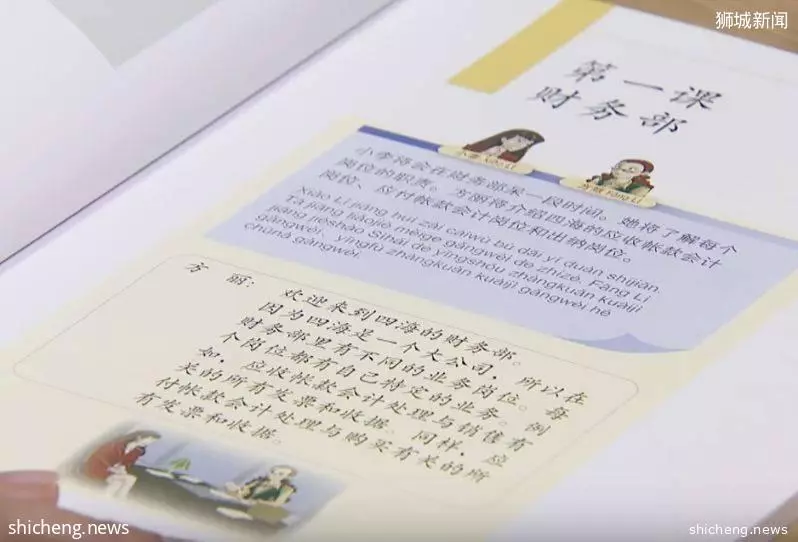 狮城新闻
第一课
财务部
小李 Xiǎo Lǐ
方丽 Fāng Lì
小李将会在财务部呆一段时间。她将了解每个
岗位的职责。方丽将介绍四海的应收帐款会计
岗位、应付帐款会计岗位和出纳岗位。
Xiǎo Lǐ jiāng huì zài cáiwù bù dāi yí duàn shíjiān.
Tā jiāng liǎojiě měige gǎngwèi de zhízé. Fāng Lì
jiāng jièshào Sìhǎi de yīngshōu zhàngkuǎn kuàijì
gǎngwèi、yīngfù zhàngkuǎn kuàijì gǎngwèi hé
chūnà gǎngwèi.
方丽：欢迎来到四海的财务部。
因为四海是一个大公司，所以在
财务部里有不同的业务岗位。每
个岗位都有自己特定的业务。例
如，应收帐款会计处理与销售有
关的所有发票和收据。同样，应
付帐款会计处理与购买有关的所
有发票和收据。
shicheng.news
shicheng.news